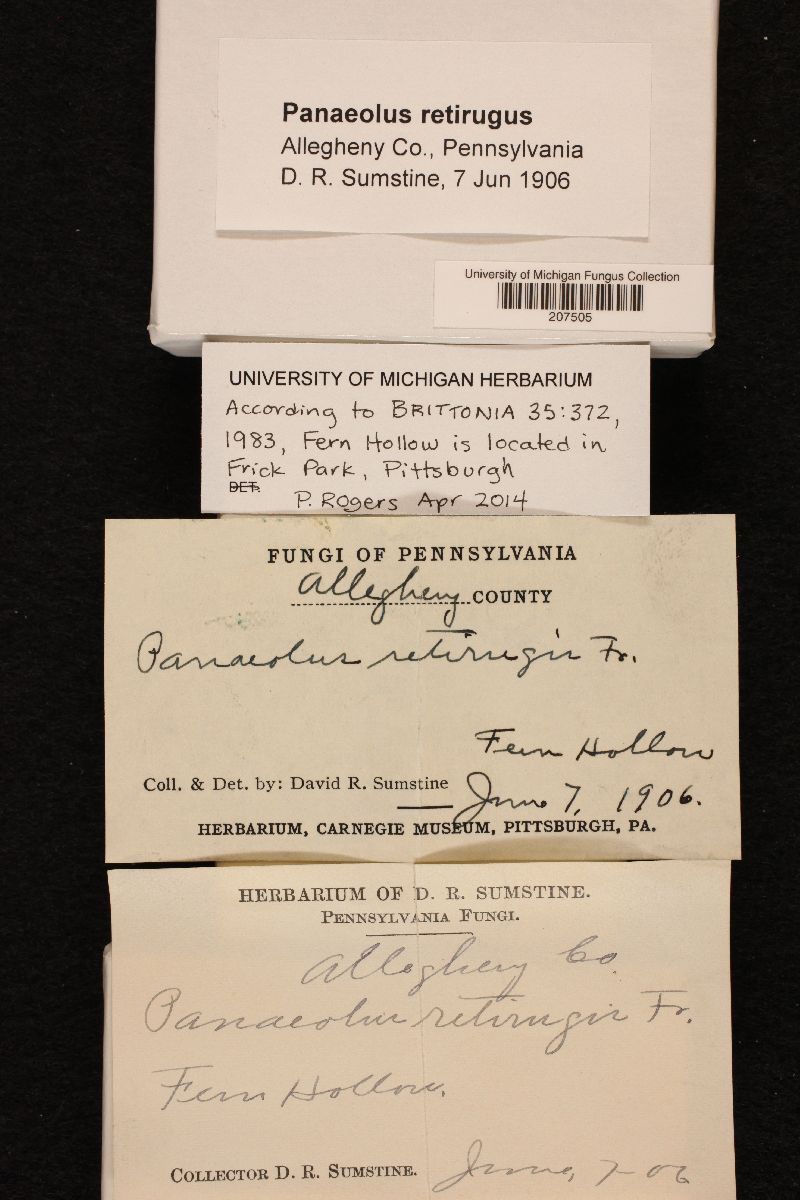 Panaeolus retirugus
Allegheny Co., Pennsylvania
D. R. Sumstine, 7 Jun 1906
University of Michigan Fungus Collection
207505
UNIVERSITY OF MICHIGAN HERBARIUM
According to BRITTONIA 35:372,
1983, Fern Hollow is located in
Frick Park, Pittsburgh
DET.
P. Rogers Apr 2014
FUNGI OF PENNSYLVANIA
Allegheny COUNTY
Panaeolus retirugis Fr.
Fern Hollow
Coll. & Det. by: David R. Sumstine
June 7, 1906.
HERBARIUM, CARNEGIE MUSEUM, PITTSBURGH, PA.
HERBARIUM OF D. R. SUMSTINE.
PENNSYLVANIA FUNGI.
Allegheny Co.
Panaeolus retirugis Fr.
Fern Hollow.
COLLECTOR D. R. SUMSTINE. June, 7-06